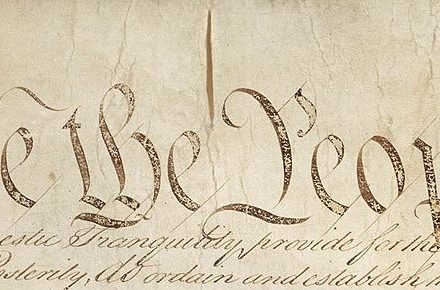 e the Peop
estic Tranquility, provide for the
Posterity, do ordain and establish